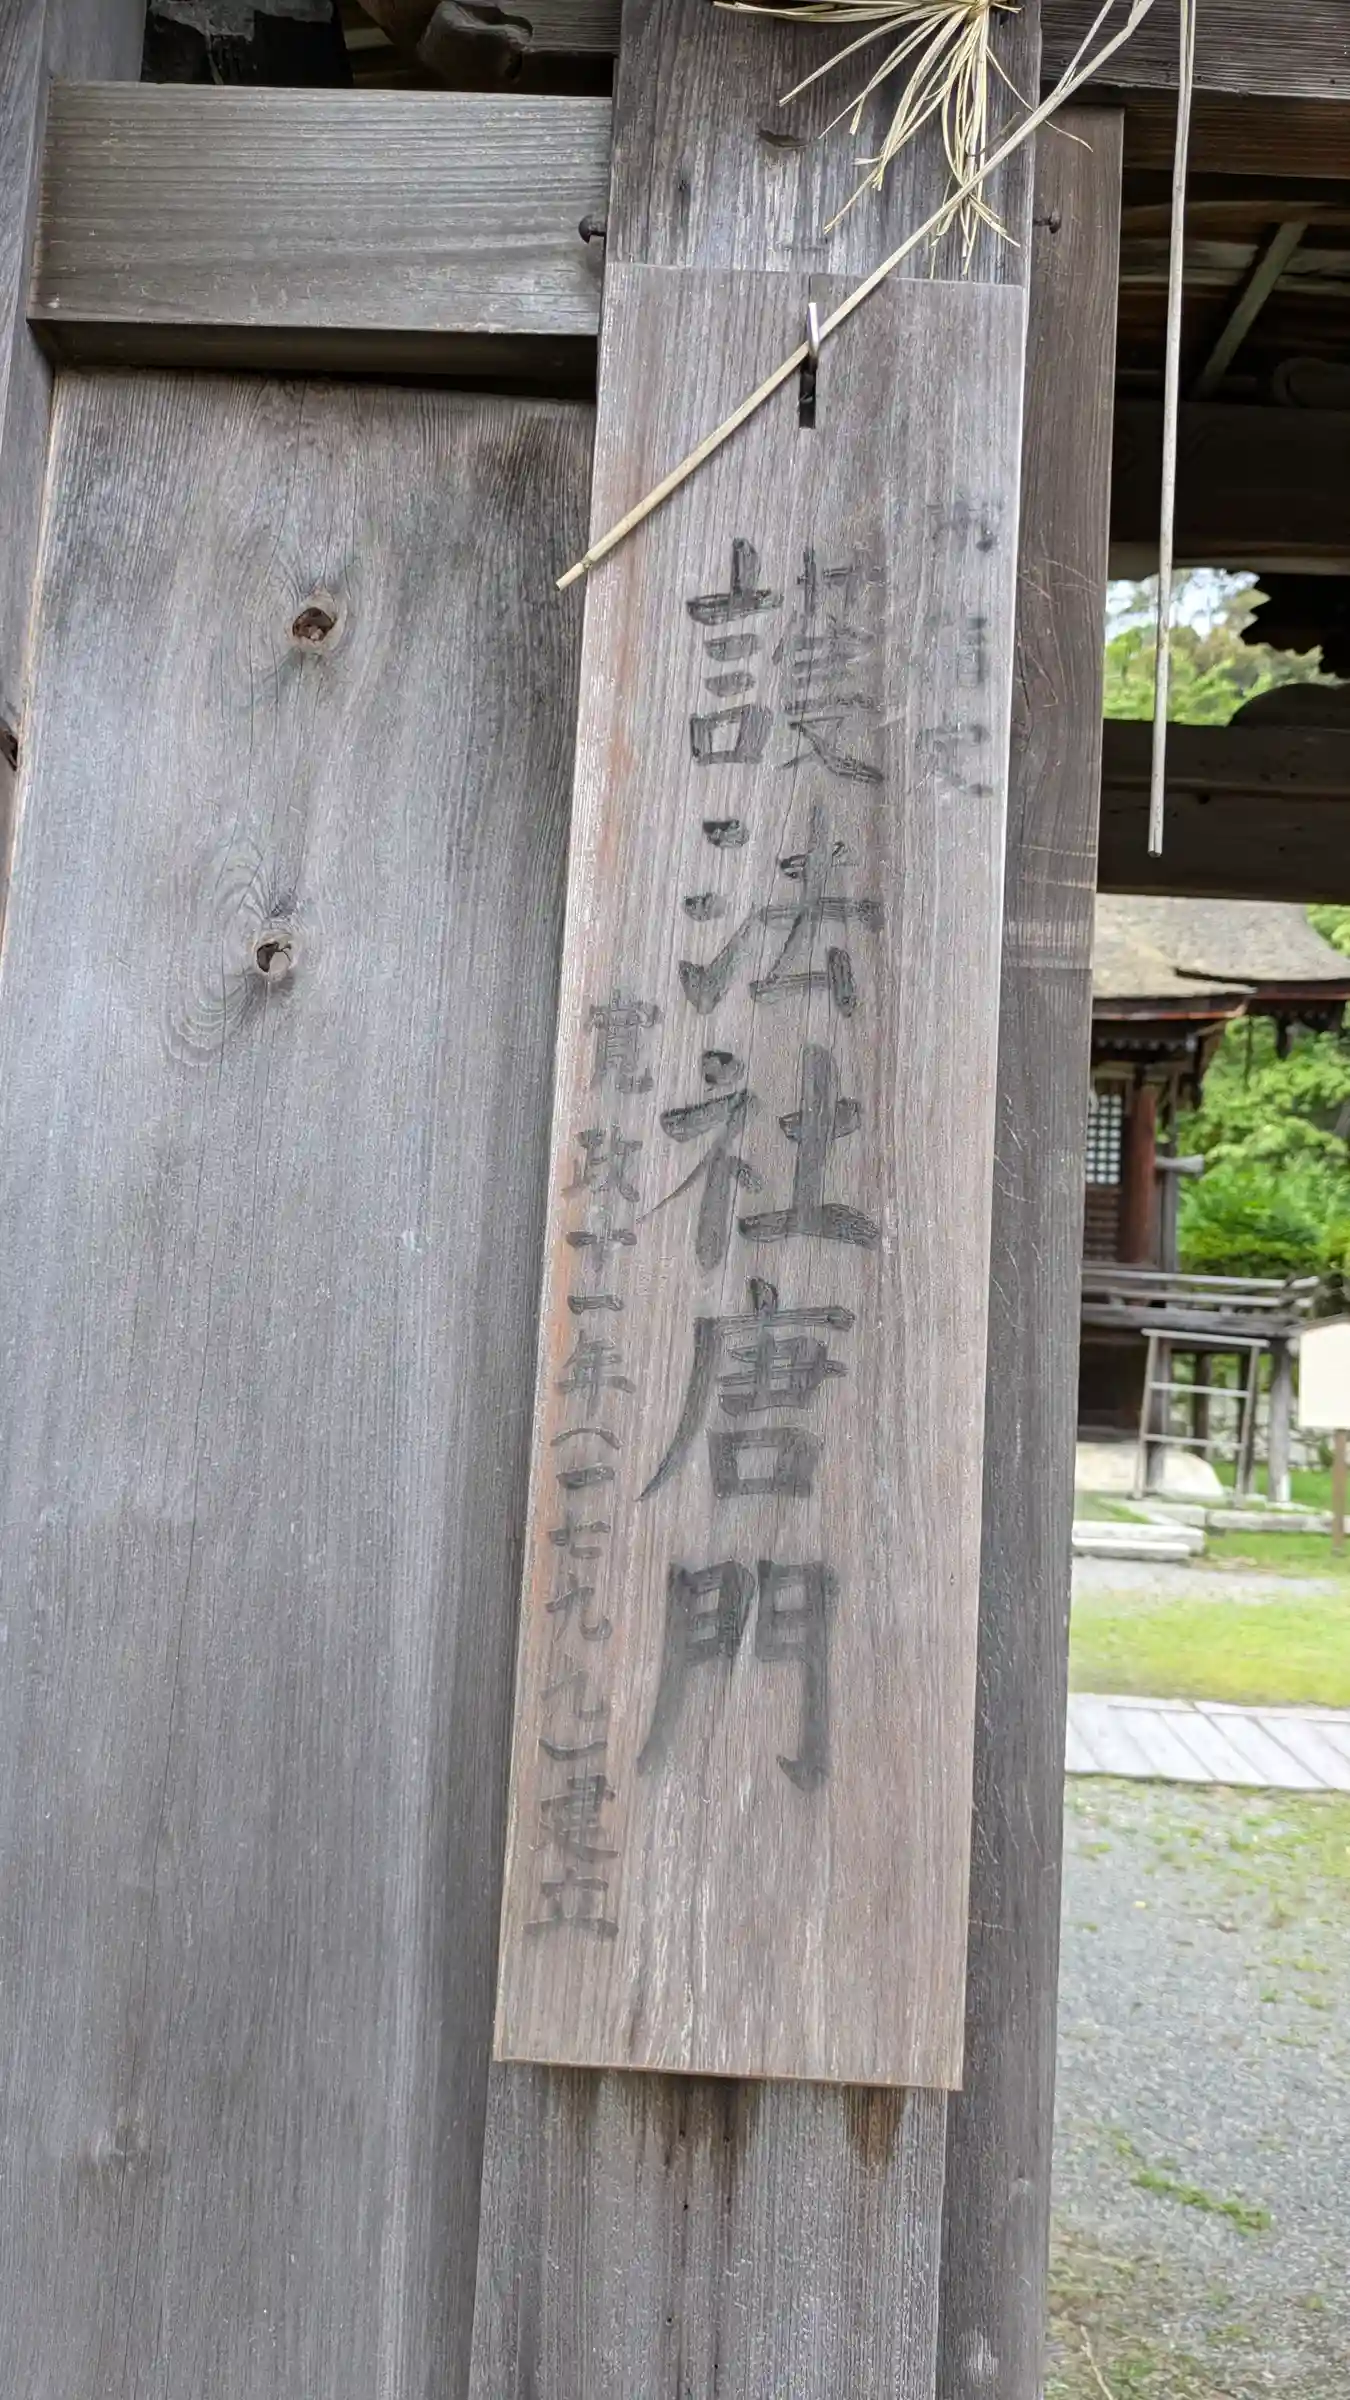 指定
護法社唐門
寛政十一年(一七九九)建立